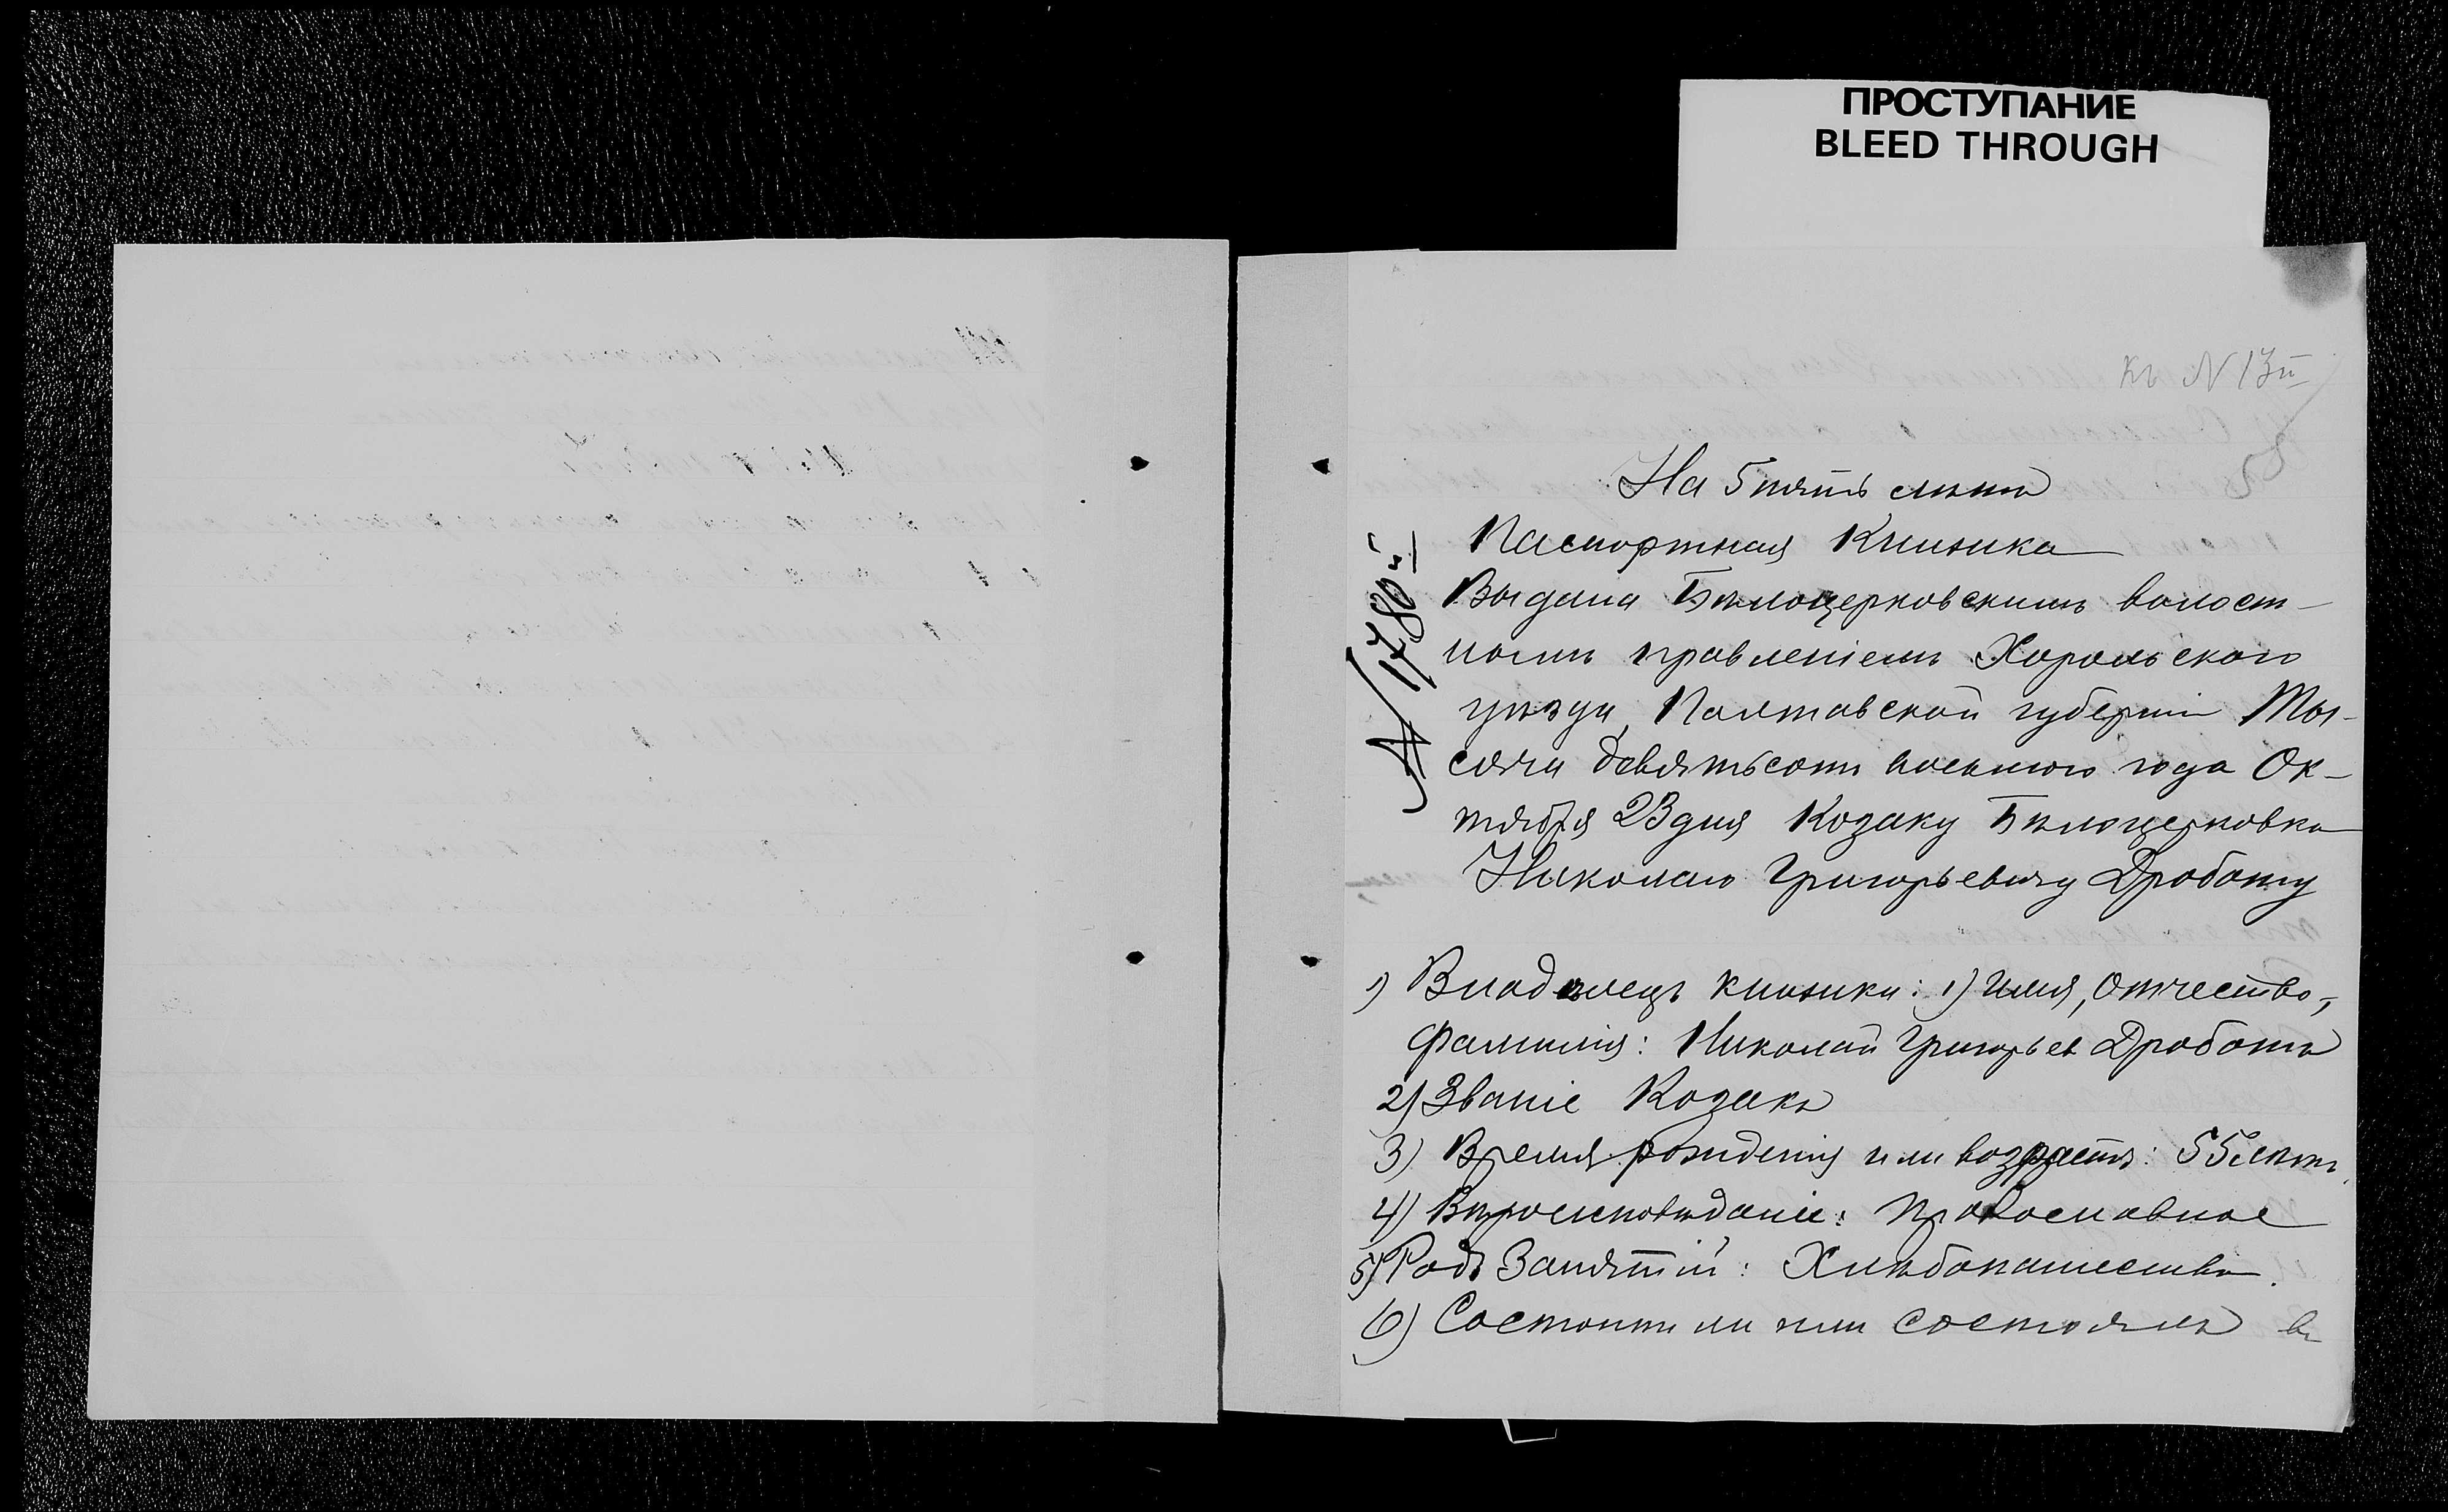 ПРОСТУПАНИЕ
BLEED THROUGH
къ N 13й
55
На 5 пять летъ
Паспортная Книжка
№ 1780й
Выдана Бѣлоцерковскимъ волост-
нымъ правленіемъ Хорольского
уѣзда, Полтавской губерніи Ты-
сяча девятьсотъ восьмого года Ок-
тября 23 дня Козаку Бѣлоцерковки
Николаю Григорьевичу Дроботу
1) Владѣлецъ книжки: 1) Имя, Отчество,
Фамилія: Николай Григорьев Дроботъ
2) Званіе Козакъ
3) Время рожденія или возрастъ: 55 летъ
4) Вѣроисповѣданіе: Православное
5) Родъ Занятій: Хлѣбопашество.
6) Состоитъ ли или состоялъ въ